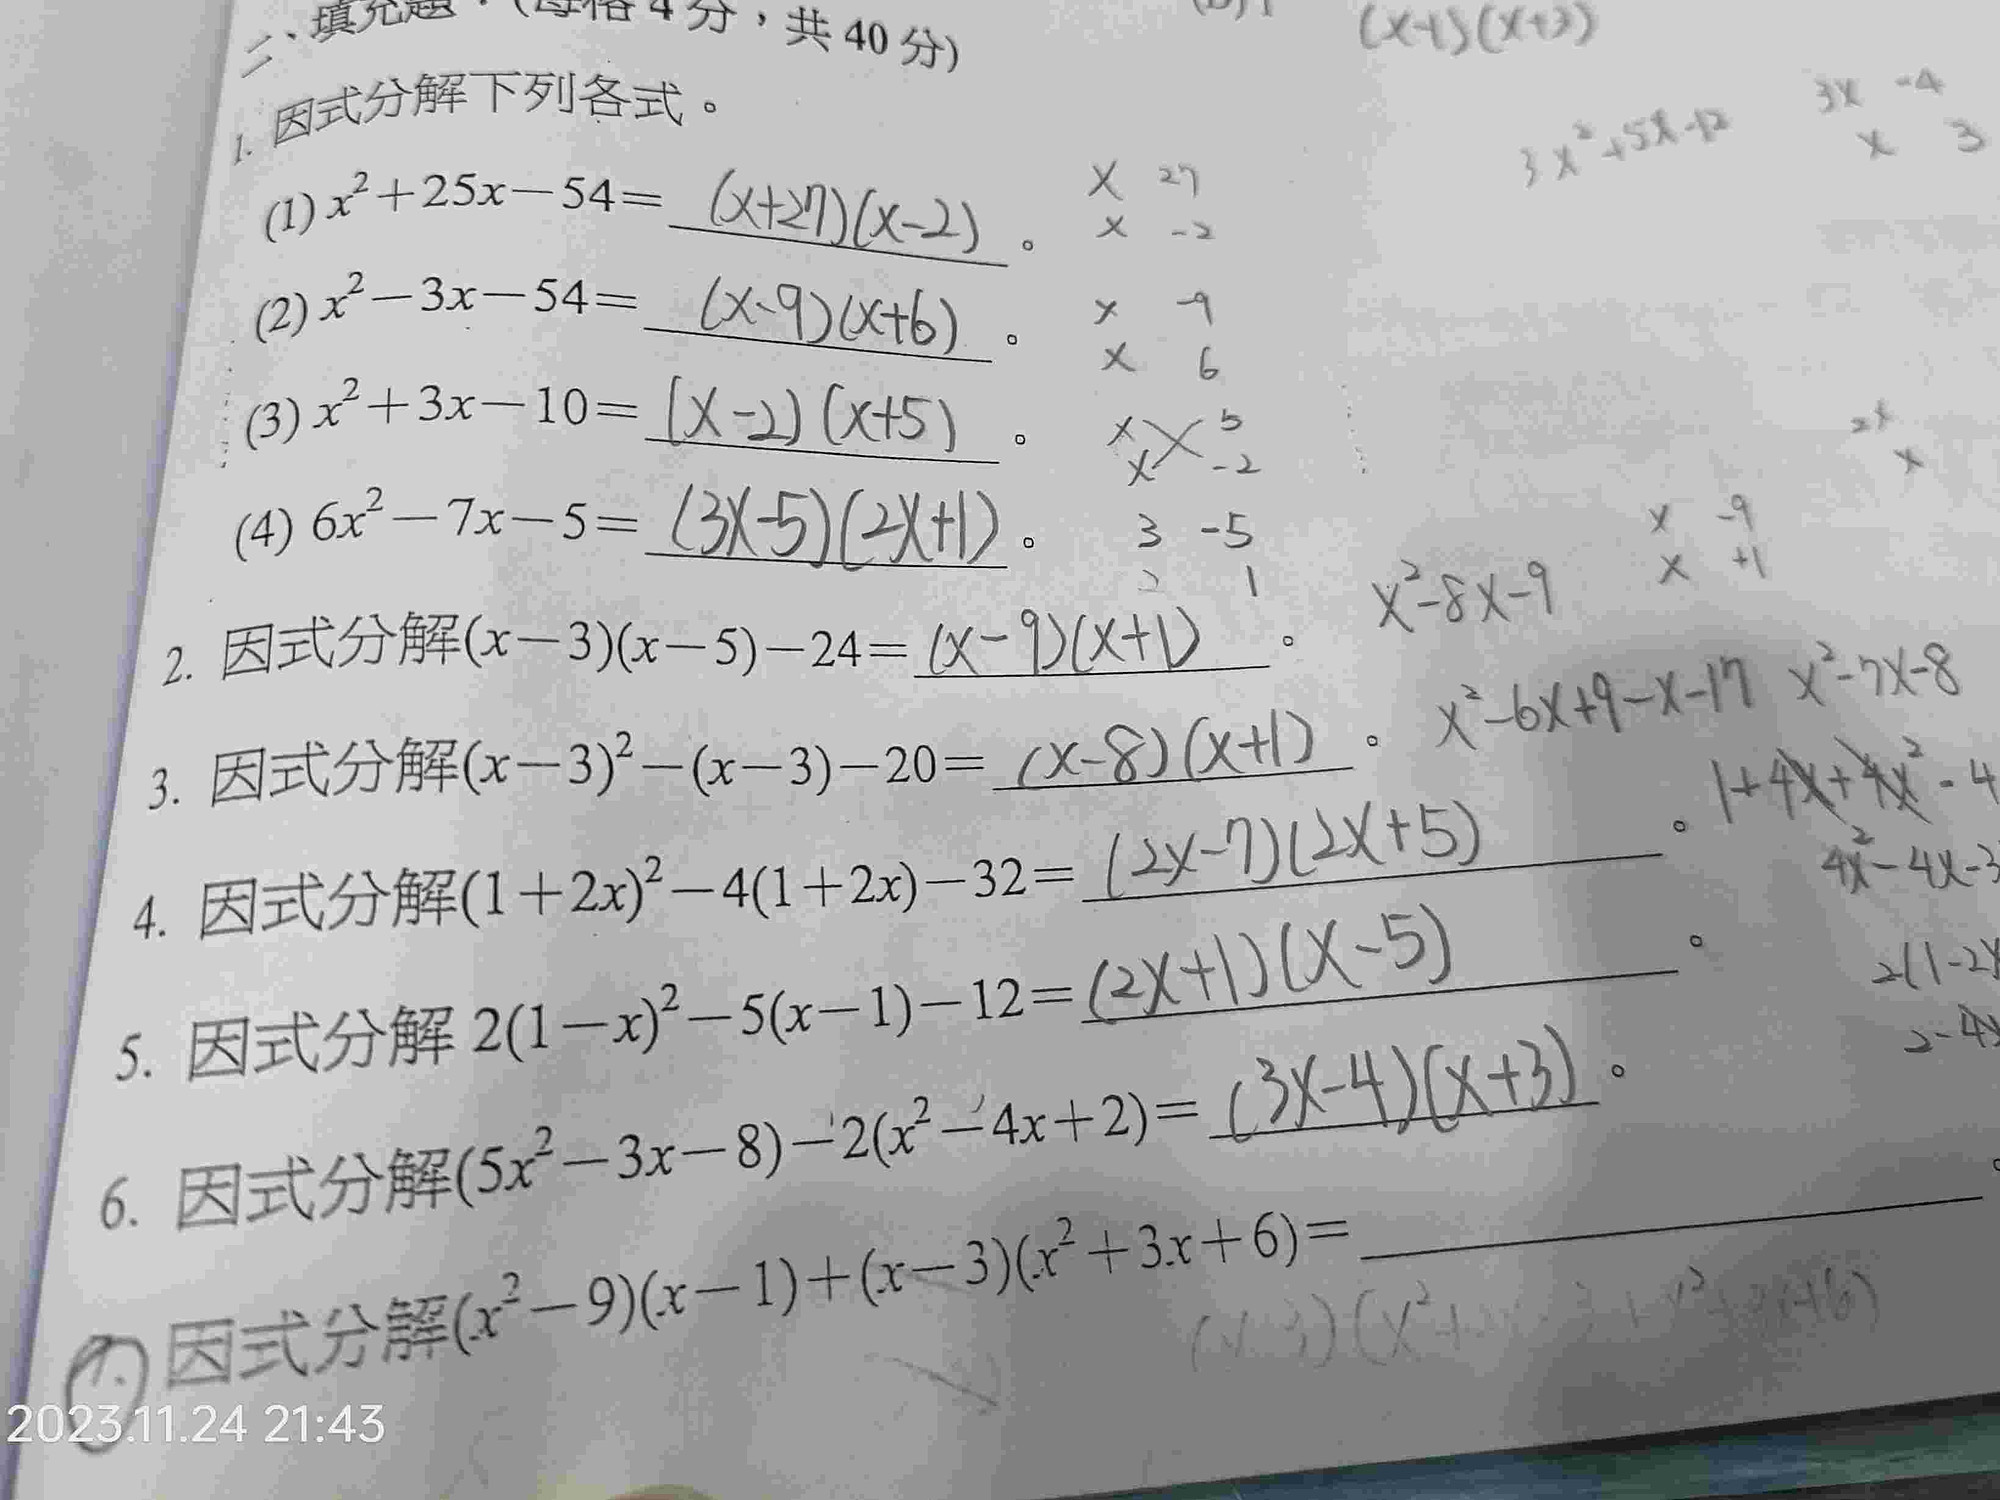 二、填充題：(每格 4 分，共 40 分)
(x+3)
1. 因式分解下列各式。
3x²+5x-12
3x -4
x 3
(1) x²+25x-54= (x+27)(x-2) 。
x 27
x -2
(2) x²-3x-54= (x-9)(x+6) 。
x -9
x 6
(3) x²+3x-10= (x-2)(x+5) 。
x 5
x -2
2x
x
(4) 6x²-7x-5= (3x-5)(2x+1) 。
3 -5
2 1
2. 因式分解(x-3)(x-5)-24= (x-9)(x+1) 。
x²-8x-9
x -9
x +1
3. 因式分解(x-3)²-(x-3)-20= (x-8)(x+1) 。
x²-6x+9-x-17 x²-7x-8
4. 因式分解(1+2x)²-4(1+2x)-32= (2x-7)(2x+5) 。
1+4x+4x²-4
4x²-4x-3
5. 因式分解 2(1-x)²-5(x-1)-12= (2x+1)(x-5) 。
2(1-2x
2-4x
6. 因式分解(5x²-3x-8)-2(x²-4x+2)= (3x-4)(x+3) 。
7. 因式分解(x²-9)(x-1)+(x-3)(x²+3x+6)= 。
2023.11.24 21:43